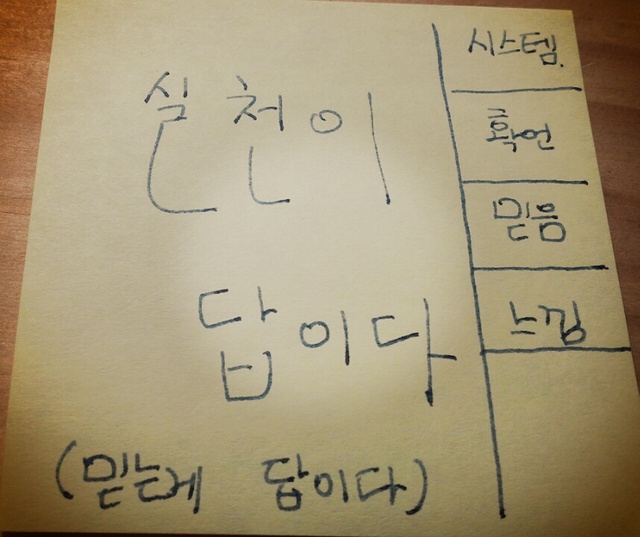 실천이
답이다
(믿는게 답이다)
시스템.
확언
믿음
느낌